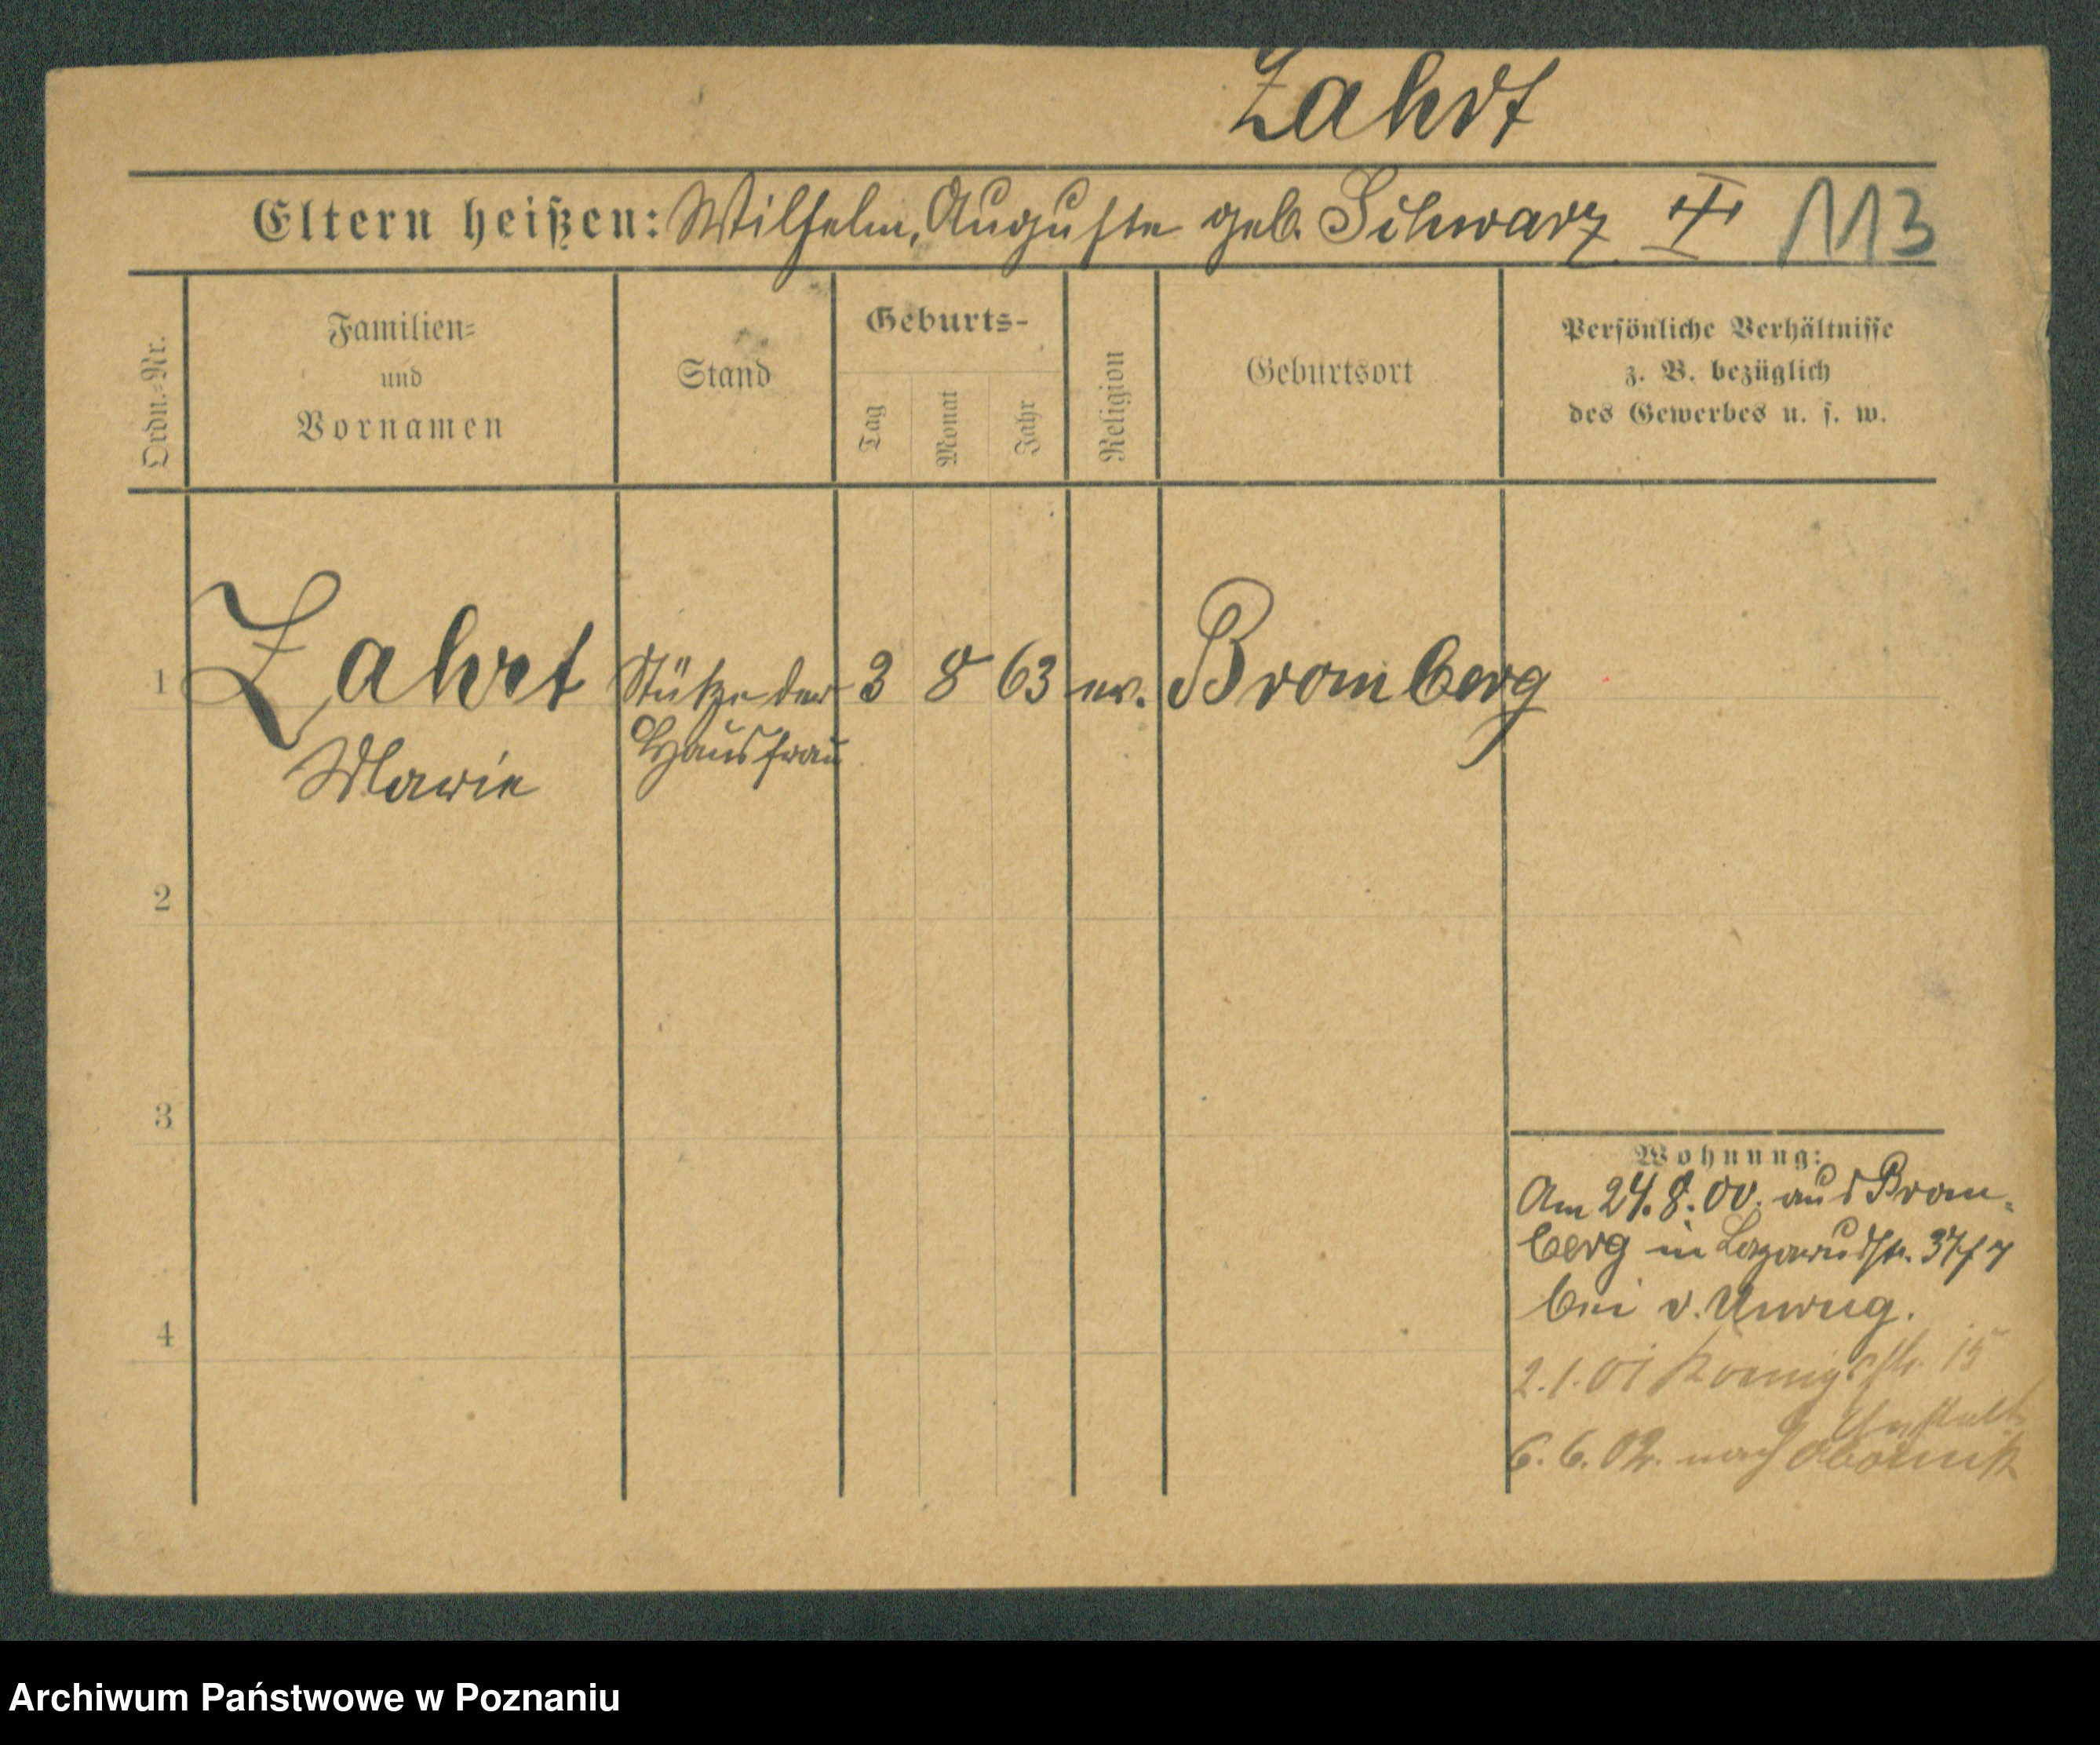 Zahrt
Eltern heißen: Wilhelm, Auguste geb. Schwarz 113
Ordn.-Nr.
Familien-
und
Vornamen
Stand
Geburts-
Tag
Monat
Jahr
Religion
Geburtsort
Persönliche Verhältnisse
z. B. bezüglich
des Gewerbes u. s. w.
1 Zahrt Stütze der 3 8 63 ev. Bromberg
Marie Hausfrau
2
3
4
Wohnung:
Am 24.8.00. aus Brom-
berg in Lazarusstr.
bei v. Unrug.
2.1.01 Koenigstr. 15
6.6.02. nach Obornik
Archiwum Państwowe w Poznaniu